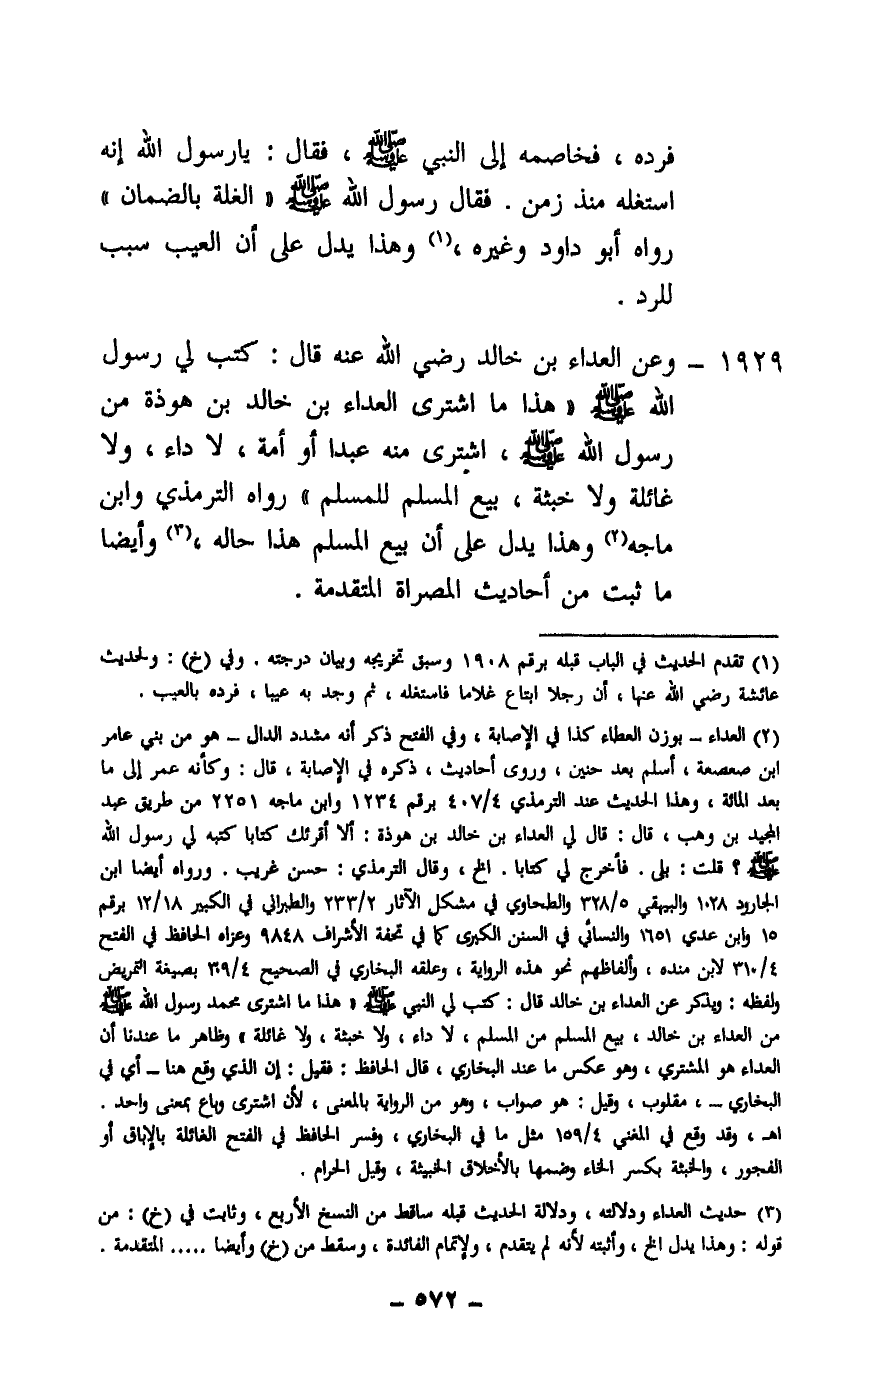 فرده ، فخاصمه إلى النبي ﷺ ، فقال : يارسول الله إنه
استغله منذ زمن . فقال رسول الله ﷺ « الغلة بالضمان »
رواه أبو داود وغيره ،(١) وهذا يدل على أن العيب سبب
للرد .
١٩٢٩ ـ وعن العداء بن خالد رضي الله عنه قال : كتب لي رسول
الله ﷺ « هذا ما اشترى العداء بن خالد بن هوذة من
رسول الله ﷺ ، اشترى منه عبدا أو أمة ، لا داء ، ولا
غائلة ولا خبثة ، بيع المسلم للمسلم » رواه الترمذي وابن
ماجه(٢) وهذا يدل على أن بيع المسلم هذا حاله ،(٣) وأيضا
ما ثبت من أحاديث المصراة المتقدمة .
(١) تقدم الحديث في الباب قبله برقم ١٩٠٨ وسبق تخريجه وبيان درجته . وفي (خ) : ولحديث
عائشة رضي الله عنها ، أن رجلا ابتاع غلاما فاستغله ، ثم وجد به عيبا ، فرده بالعيب .
(٢) العداء ـ بوزن العطاء كذا في الإصابة ، وفي الفتح ذكر أنه مشدد الدال ـ هو من بني عامر
ابن صعصعة ، أسلم بعد حنين ، وروى أحاديث ، ذكره في الإصابة ، قال : وكأنه عمر إلى ما
بعد المائة ، وهذا الحديث عند الترمذي ٤٠٧/٤ برقم ١٢٣٤ وابن ماجه ٢٢٥١ من طريق عبد
المجيد بن وهب ، قال : قال لي العداء بن خالد بن هوذة : ألا أقرئك كتابا كتبه لي رسول الله
ﷺ ؟ قلت : بلى . فأخرج لي كتابا . الخ ، وقال الترمذي : حسن غريب . ورواه أيضا ابن
الجارود ١٠٢٨ والبيهقي ٣٢٨/٥ والطحاوي في مشكل الآثار ٢٣٣/٢ والطبراني في الكبير ١٢/١٨ برقم
١٥ وابن عدي ١٦٥١ والنسائي في السنن الكبرى كما في تحفة الأشراف ٩٨٤٨ وعزاه الحافظ في الفتح
٣١٠/٤ لابن منده ، وألفاظهم نحو هذه الرواية ، وعلقه البخاري في الصحيح ٣٠٩/٤ بصيغة التمريض
ولفظه : ويذكر عن العداء بن خالد قال : كتب لي النبي ﷺ « هذا ما اشترى محمد رسول الله ﷺ
من العداء بن خالد ، بيع المسلم من المسلم ، لا داء ، ولا خبثة ، ولا غائلة » وظاهر ما عندنا أن
العداء هو المشتري ، وهو عكس ما عند البخاري ، قال الحافظ : فقيل : إن الذي وقع هنا ـ أي في
البخاري ـ ، مقلوب ، وقيل : هو صواب ، وهو من الرواية بالمعنى ، لأن اشترى وباع بمعنى واحد .
اهـ ، وقد وقع في المغني ١٥٩/٤ مثل ما في البخاري ، وفسر الحافظ في الفتح الغائلة بالإباق أو
الفجور ، والخبثة بكسر الخاء وضمها بالأخلاق الخبيثة ، وقيل الحرام .
(٣) حديث العداء ودلالته ، ودلالة الحديث قبله ساقط من النسخ الأربع ، وثابت في (خ) : من
قوله : وهذا يدل الخ ، وأثبته لأنه لم يتقدم ، ولإتمام الفائدة ، وسقط من (خ) وأيضا ..... المتقدمة .
ـ ٥٧٢ ـ